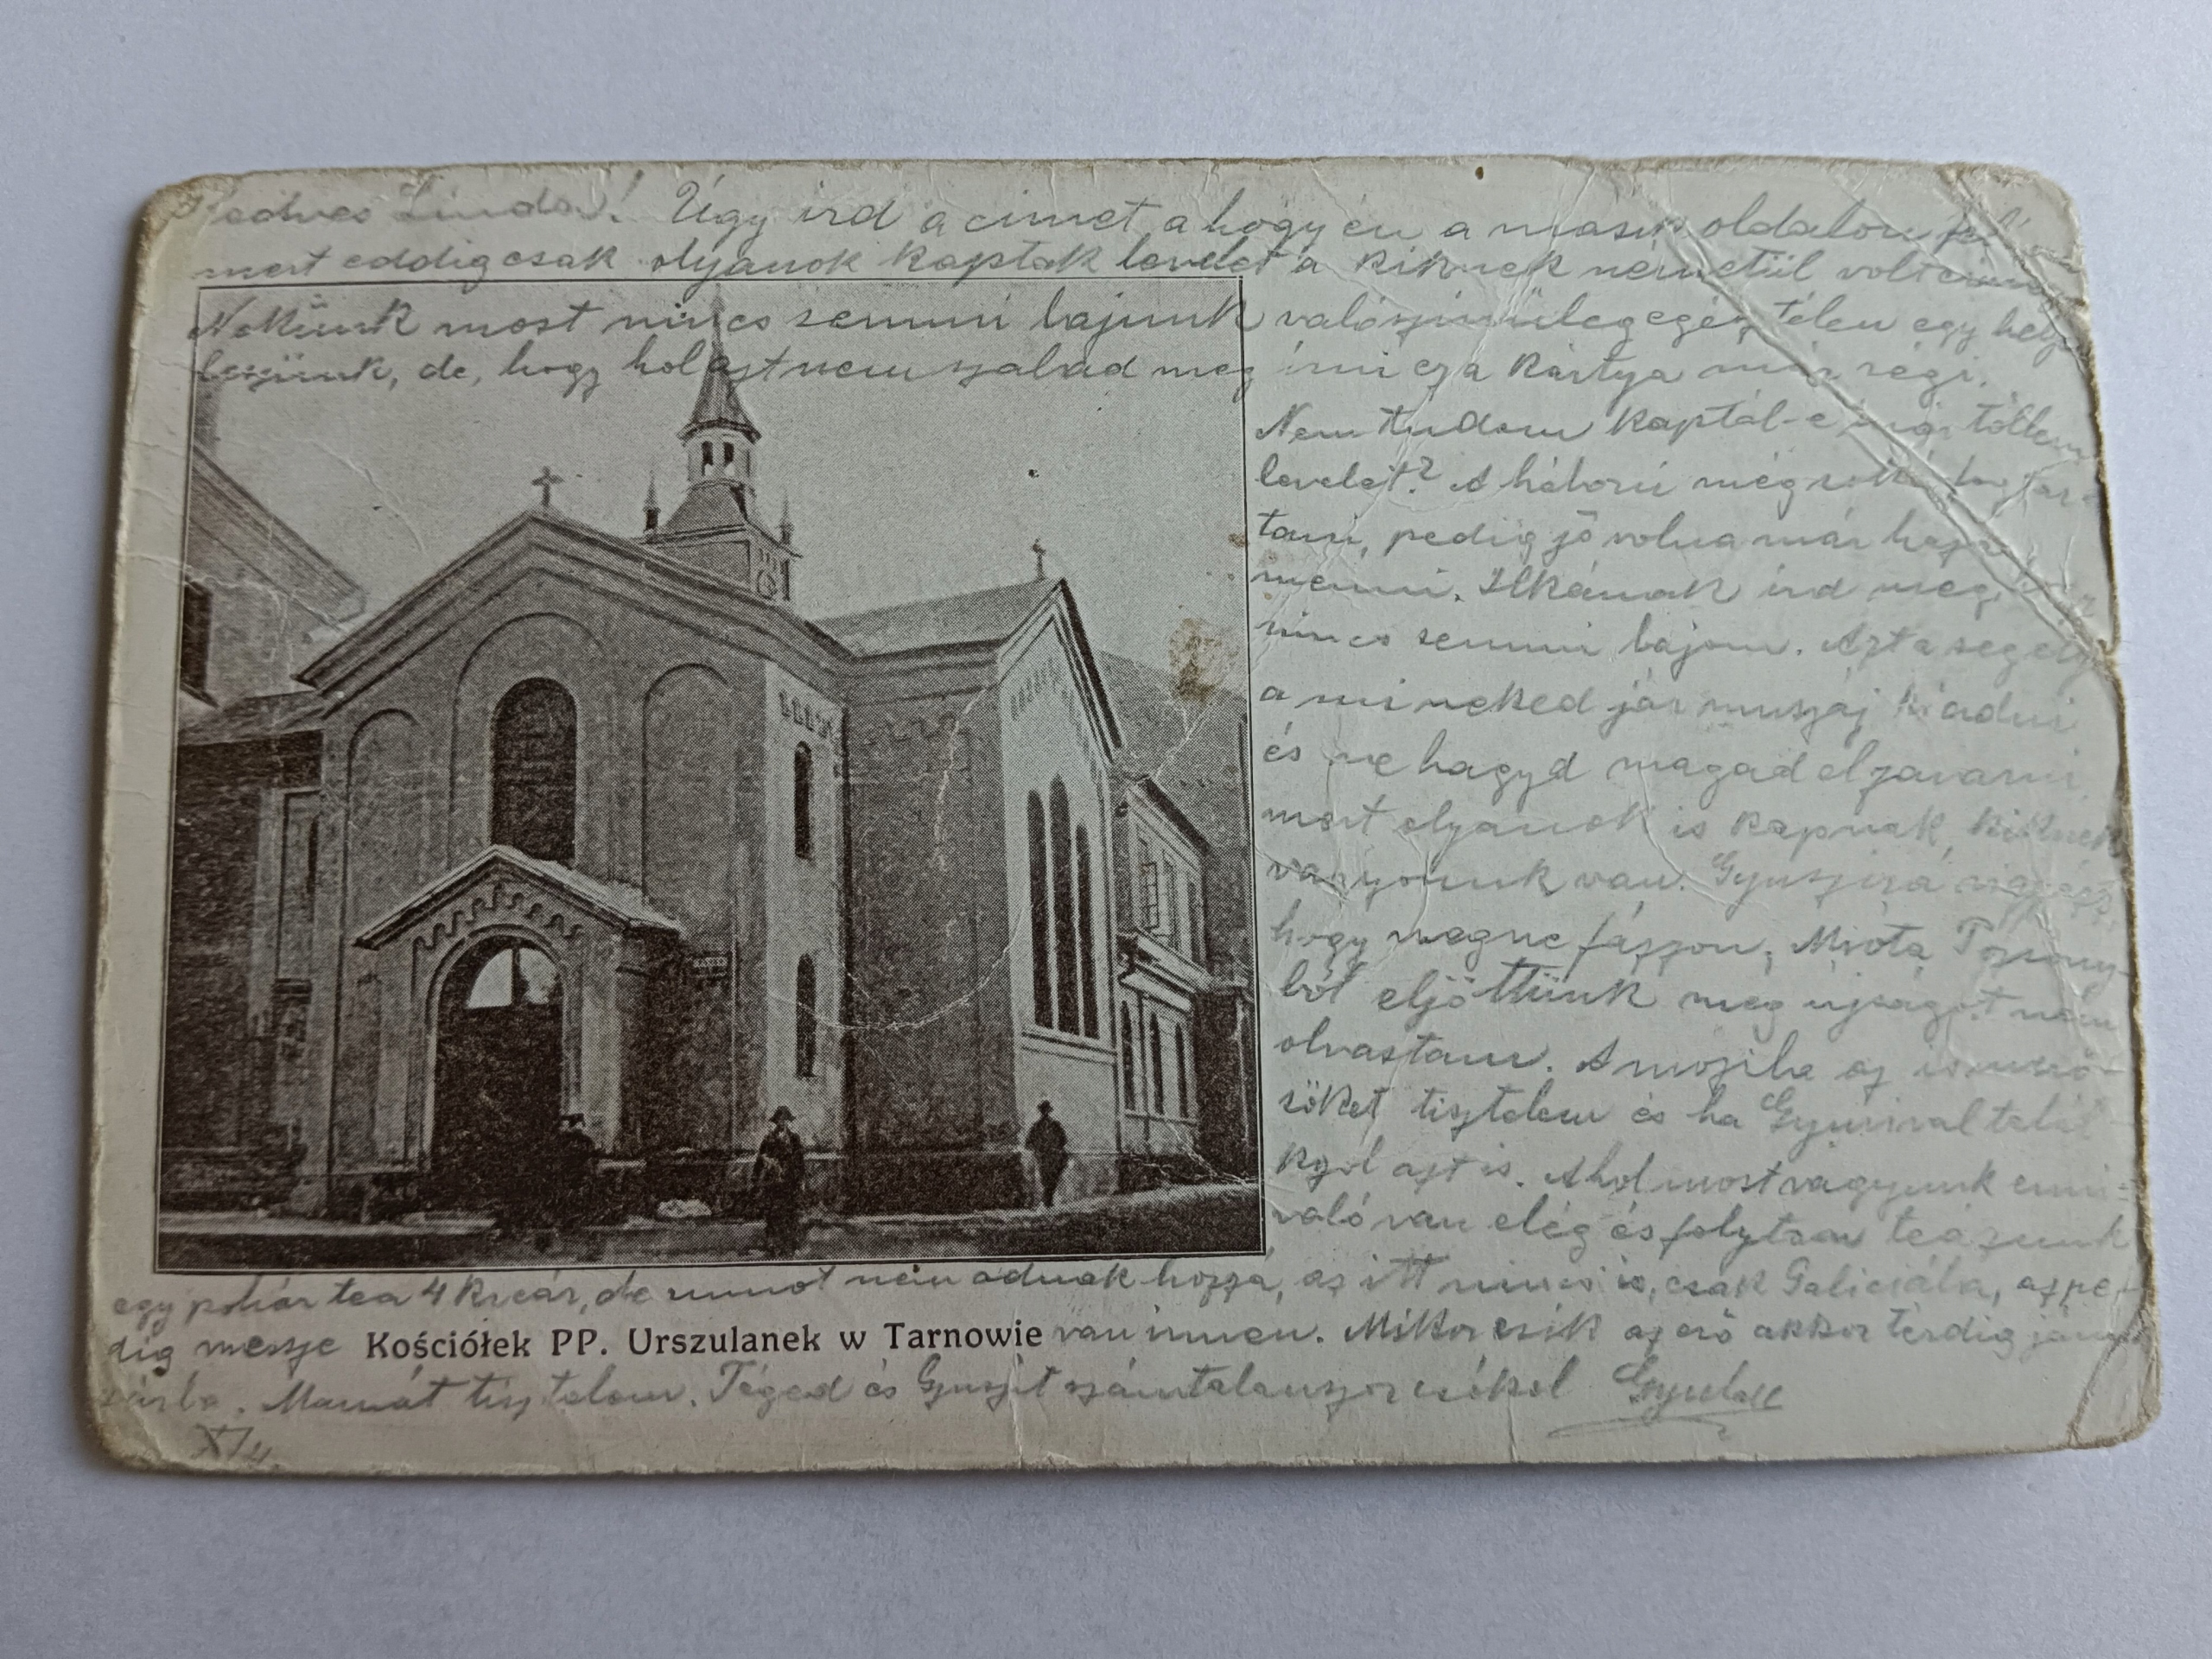 Kedves Linda! Úgy ird a cimet, a hogy én a másik oldalon
mert eddig csak olyanok kaptak levelet a kiknek németül volt
Nekünk most nincs semmi bajunk valószinüleg egész télen egy
leszünk, de, hogy hol azt nem szabad meg irni ez a kártya már régi.
Nem tudom kaptál-e már tőllem
levelet? A háború még
tani, pedig jó volna már haza
menni. Ilkának ird meg,
nincs semmi bajom. Azt a segély
a mi neked jár muszáj kiadni
és ne hagyd magad elzavarni,
mert olyanok is kapnak, kiknek
vagyonuk van. Gyuszira vigyázz,
hogy meg ne fázzon. Mióta Pozsony-
ból eljöttünk meg ujságot nem
olvastam. A moziba az ismerő-
söket tisztelem és ha Gyurival talál
kzol azt is. A hol most vagyunk enni-
való van elég és folyton teázunk
egy pohár tea 4 kr ár, de rumot nem adnak hozzá, az itt nincs is, csak Galiciába, az pe-
dig messze van innen. Mikor esik az eső akkor térdig
sárba. Mamát tisztelem. Téged és Gyuszit számtalanszor csókol Gyula
Kościółek PP. Urszulanek w Tarnowie